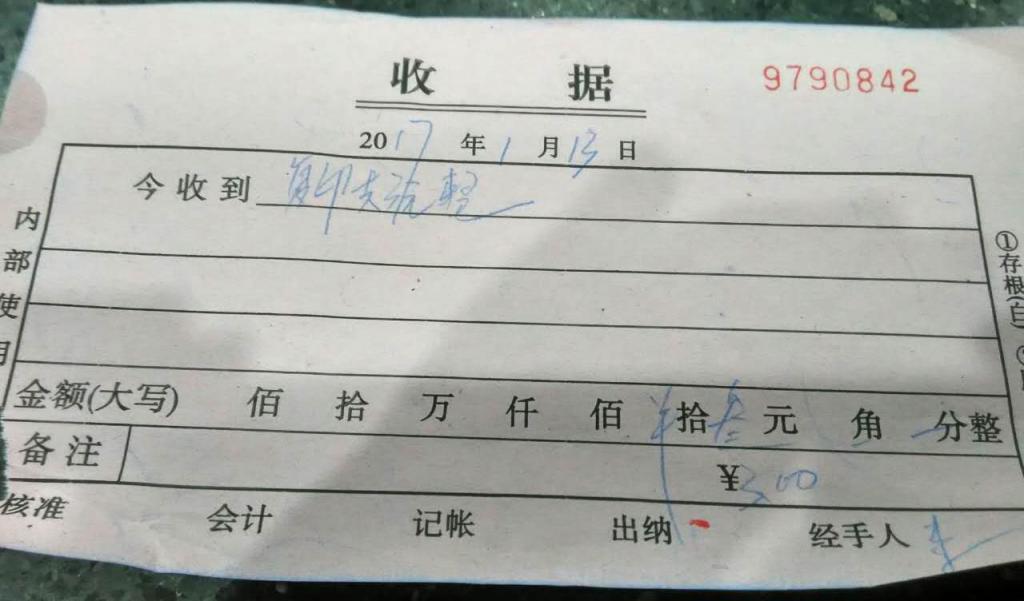 收 据 9790842
2017年1月13日
今收到 复印
金额(大写) 佰 拾 万 仟 佰 ¥ 拾 叁 元 角 分整
备注 ¥3.00
核准 会计 记帐 出纳 经手人
内部使用
①存根(白)